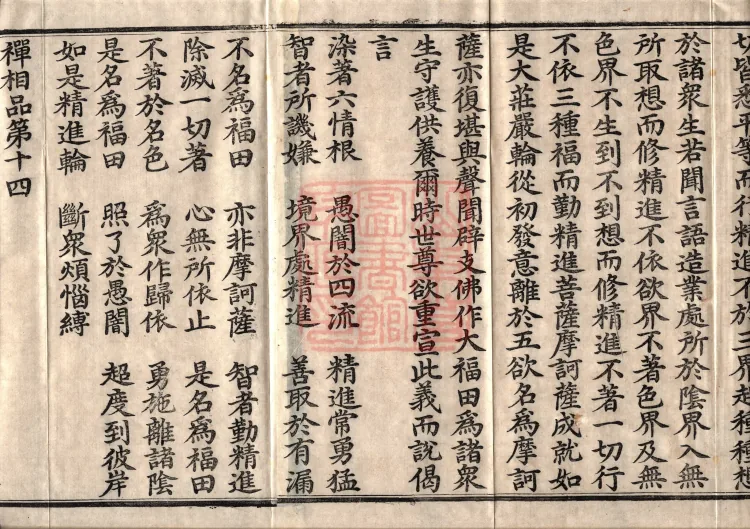 切皆悉平等而行精進不於三界起種種想
於諸衆生若聞言語造業處所於陰界入無
所取想而修精進不依欲界不著色界及無
色界不生到不到想而修精進不著一切行
不依三種福而勤精進菩薩摩訶薩成就如
是大莊嚴輪從初發意離於五欲名爲摩訶
薩亦復堪與聲聞辟支佛作大福田爲諸衆
生守護供養爾時世尊欲重宣此義而說偈
言
染著六情根 愚闇於四流 精進常勇猛
智者所譏嫌 境界處精進 善取於有漏
不名爲福田 亦非摩訶薩 智者勤精進
除滅一切著 心無所依止 是名爲福田
不著於名色 爲衆作歸依 勇施離諸陰
是名爲福田 照了於愚闇 超度到彼岸
如是精進輪 斷衆煩惱縛
禪相品第十四